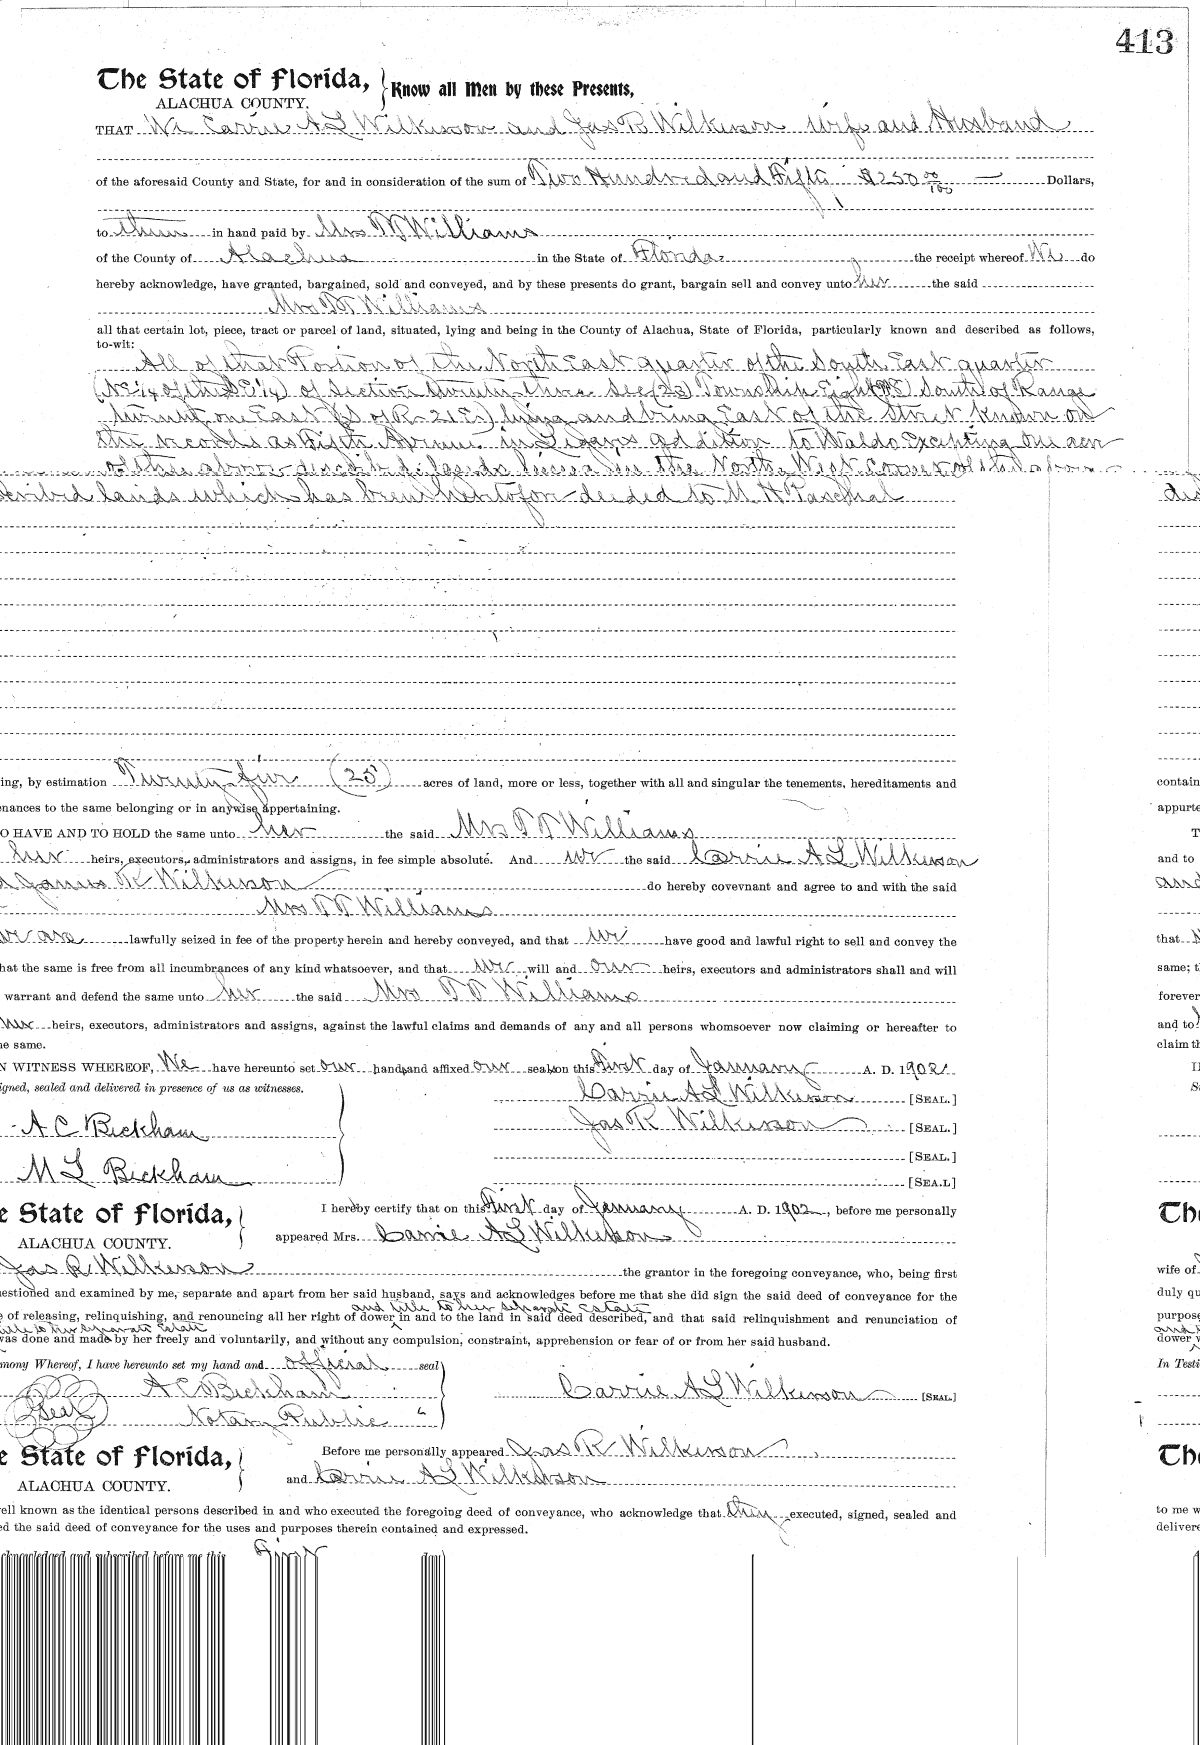 413
The State of Florida, } Know all Men by these Presents,
ALACHUA COUNTY.
THAT We Carrie A L Wilkinson and Jas R Wilkinson wife and Husband
of the aforesaid County and State, for and in consideration of the sum of Two Hundred and Fifty $250 00/100 Dollars,
to them in hand paid by Mrs Williams
of the County of Alachua in the State of Florida the receipt whereof We do
hereby acknowledge, have granted, bargained, sold and conveyed, and by these presents do grant, bargain sell and convey unto her the said
Mrs Williams
all that certain lot, piece, tract or parcel of land, situated, lying and being in the County of Alachua, State of Florida, particularly known and described as follows,
to-wit:
All of that Portion of the North East quarter of the South East quarter
(NE 1/4 of the SE 1/4) of Section twenty three Sec (23) Township Eight South of Range
twenty one East R-21E.) lying and being East of the Street known on
the records as Fifth Avenue in addition to Waldo Excepting one acre
of the above described lands in the North West corner of the above
cribed lands which has been heretofore deeded to M. H. Paschal
des
ing, by estimation Twenty five (25) acres of land, more or less, together with all and singular the tenements, hereditaments and
contain
enances to the same belonging or in anywise appertaining.
appurte
O HAVE AND TO HOLD the same unto her the said Mrs Williams
T
her heirs, executors, administrators and assigns, in fee simple absolute. And we the said Carrie A L Wilkinson
and to
d James R Wilkinson do hereby covevnant and agree to and with the said
and
Mrs Williams
we are lawfully seized in fee of the property herein and hereby conveyed, and that we have good and lawful right to sell and convey the
that
hat the same is free from all incumbrances of any kind whatsoever, and that we will and our heirs, executors and administrators shall and will
same; t
warrant and defend the same unto her the said Mrs Williams
forever
her heirs, executors, administrators and assigns, against the lawful claims and demands of any and all persons whomsoever now claiming or hereafter to
and to
he same.
claim th
N WITNESS WHEREOF, We have hereunto set our hands and affixed our seals on this First day of January A. D. 1902
I
igned, sealed and delivered in presence of us as witnesses.
S
Carrie A L Wilkinson [SEAL.]
Jas R Wilkinson [SEAL.]
A C Bickham
[SEAL.]
M L Bickham
[SEA.L]
e State of Florida, }
I hereby certify that on this First day of January A. D. 1902, before me personally
The
ALACHUA COUNTY.
appeared Mrs. Carrie A L Wilkinson
Jas R Wilkinson the grantor in the foregoing conveyance, who, being first
wife of
estioned and examined by me, separate and apart from her said husband, says and acknowledges before me that she did sign the said deed of conveyance for the
duly qu
and title to her separate Estate
e of releasing, relinquishing, and renouncing all her right of dower in and to the land in said deed described, and that said relinquishment and renunciation of
purpose
title to her separate Estate
was done and made by her freely and voluntarily, and without any compulsion, constraint, apprehension or fear of or from her said husband.
dower
mony Whereof, I have hereunto set my hand and official seal
In Testi
A C Bickham
Carrie A L Wilkinson [SEAL]
Seal
Notary Public
e State of Florida, }
Before me personally appeared Jas R Wilkinson
The
ALACHUA COUNTY.
and Carrie A L Wilkinson
ell known as the identical persons described in and who executed the foregoing deed of conveyance, who acknowledge that they executed, signed, sealed and
to me w
ed the said deed of conveyance for the uses and purposes therein contained and expressed.
delivere
cknowledged and subscribed before me this First day